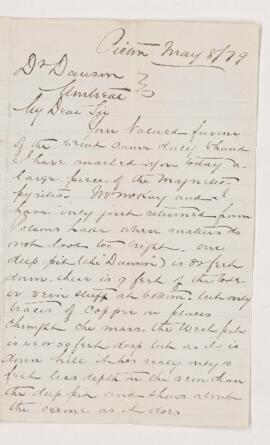 Pictou May 8/79
Dr Dawson
Montreal
My Dear Sir
Your valued favour
of the came duly to hand
I have mailed you today a
large piece of the Magnetic
pyrites. Mr McKay and I
have only just returned from
Polsons Lake where matters do
not look too bright. One
deep pit (the "Dawson") is 82 feet
down. there is 9 feet of the lode
or vein stuff at bottom. but only
traces of Copper in places
through the mass. the West pit
is 50 feet deep but as it is
down hill it has really only 10
feet less depth in the vein than
the deep pit and shows about
the same as it does